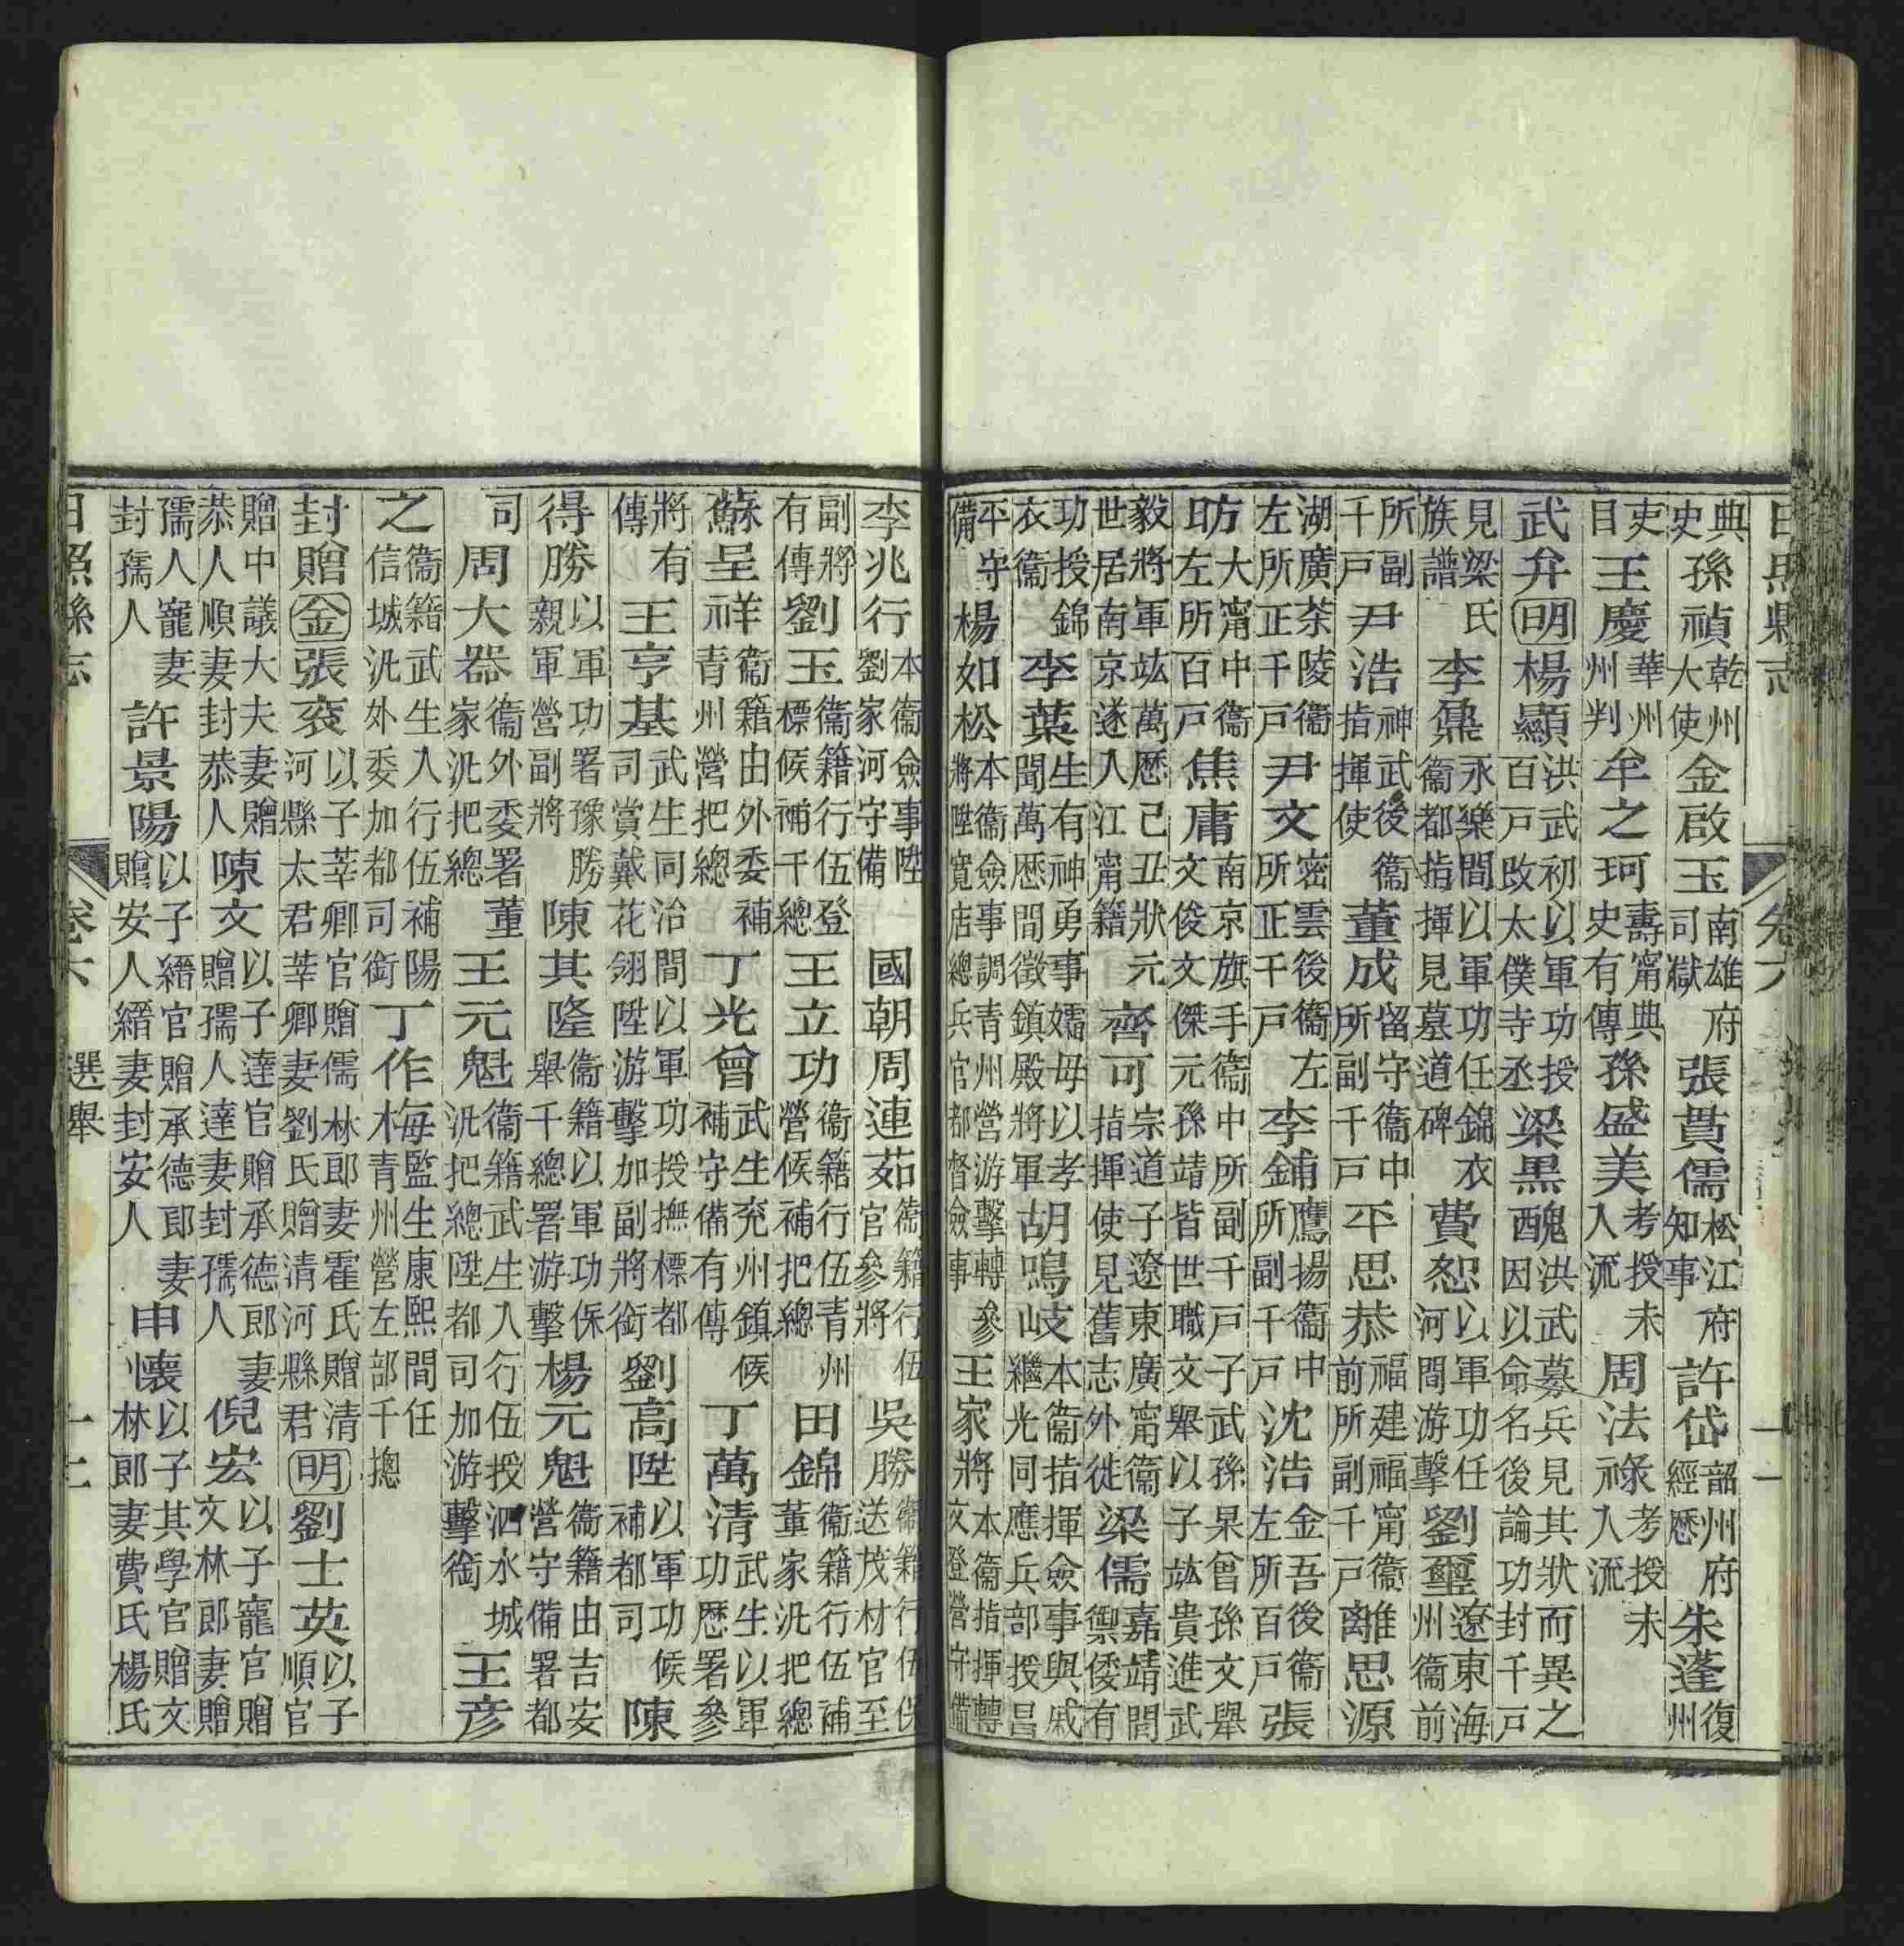 日照縣志 卷六 十一
典史孫禎乾州大使金啟玉南雄府司獄張貫儒松江府知事許岱韶州府經歷朱蓬復州
吏目王慶華州州判牟之珂壽甯典史有傳孫盛美考授未入流周法祿考授未入流
武弁明楊顯洪武初以軍功授百戶改太僕寺丞梁黒醜洪武募兵見其狀而異之因以命名後論功封千戶
見梁氏族譜李鼐永樂間以軍功任錦衣衞都指揮見墓道碑費恕以軍功任河間游擊劉璽遼東海州衞前
所副千戶尹浩神武後衞指揮使董成留守衞中所副千戶平思恭福建福甯衞前所副千戶離思源
湖廣茶陵衞左所正千戶尹文密雲後衞左所正千戶李鋪鷹揚衞中所副千戶沈浩金吾後衞左所百戶張
昉大甯中衞左所百戶焦庸南京旗手衞中所副千戶子武孫杲曾孫文舉文俊文傑元孫靖皆世職文舉以子竑貴進武
毅將軍竑萬歷己丑狀元世居南京遂入江甯籍齊可宗道子遼東廣甯衞指揮使見舊志外徙梁儒嘉靖間禦倭有
功授錦衣衞李葉生有神勇事嬬母以孝聞萬歷間徵鎮殿將軍胡鳴岐本衞指揮僉事與戚繼光同應兵部授昌
平守備楊如松本衞僉事調青州營游擊轉參將陞寬店總兵官都督僉事王家將本衞指揮轉文登營守備
李兆行本衞僉事陞劉家河守備 國朝周連茹衞籍行伍官參將吳勝衞籍行伍保送茂材官至
副將有傳劉玉衞籍行伍登標候補千總王立功衞籍行伍青州營候補把總田錦衞籍行伍補董家汛把總
蘇呈祥衞籍由外委補青州營把總丁光曾武生兗州鎮候補守備有傳丁萬清武生以軍功歷署參
將有傳王亨基武生同治間以軍功授撫標都司賞戴花翎陞游擊加副將銜劉高陞以軍功候補都司陳
得勝以軍功署豫勝親軍營副將陳其隆衞籍以軍功保舉千總署游擊楊元魁衞籍由吉安營守備署都
司周大器衞外委署董家汛把總王元魁衞籍武生入行伍授泗水城汛把總陞都司加游擊銜王彥
之衞籍武生入行伍補陽信城汛外委加都司銜丁作梅監生康熙間任青州營左部千摠
封贈金張袞以子莘卿官贈儒林郎妻霍氏贈清河縣太君莘卿妻劉氏贈清河縣君明劉士英以子順官
贈中議大夫妻贈恭人順妻封恭人陳文以子達官贈承德郎妻贈孺人達妻封孺人倪宏以子寵官贈文林郎妻贈
孺人寵妻封孺人許景陽以子縉官贈承德郎妻贈安人縉妻封安人申懷以子其學官贈文林郎妻費氏楊氏
日照縣志 卷六 選舉 十二